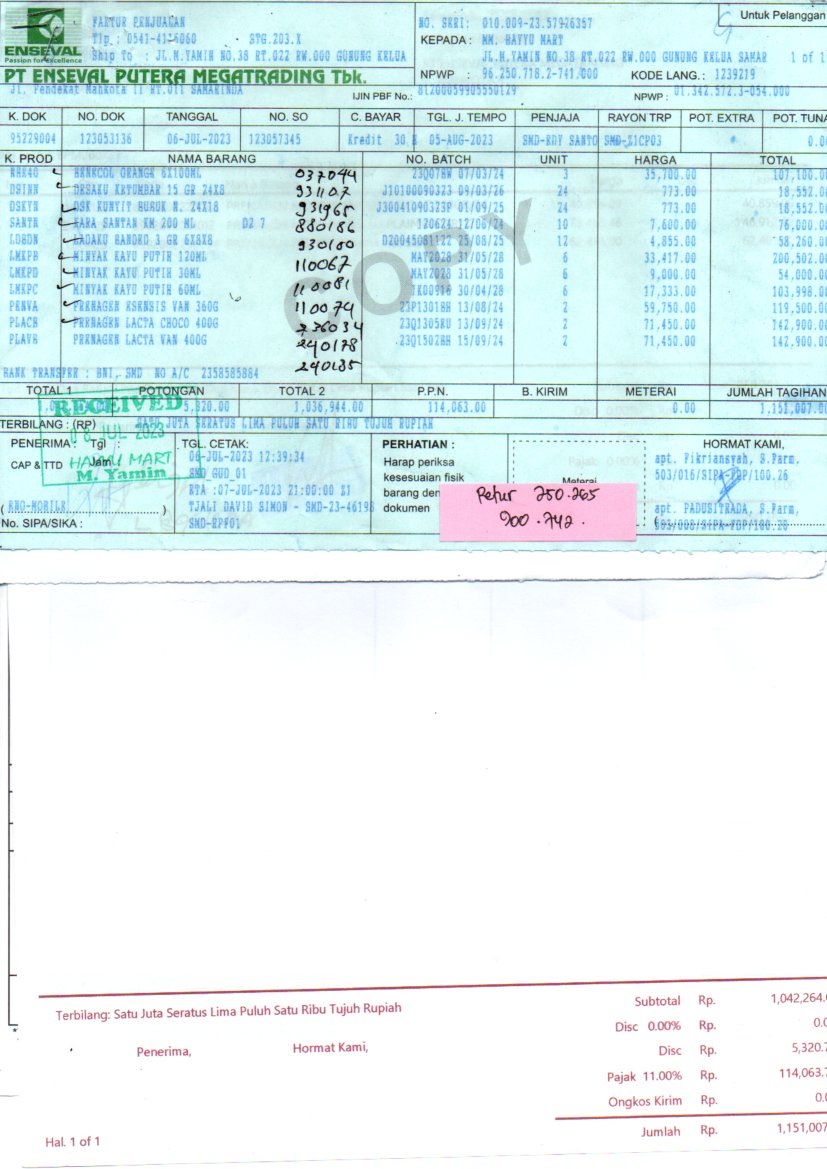 FAKTUR PENJUALAN
Tlp : 0541-4116060 STG.203.X
Ship To : JL.M.YAMIN NO.38 RT.022 RW.000 GUNUNG KELUA
ENSEVAL
Passion for Excellence
PT ENSEVAL PUTERA MEGATRADING Tbk.
Jl. Pendekat Mahkota II RT.011 SAMARINDA
NO. SERI: 010.009-23.57926357
Untuk Pelanggan
KEPADA : MM. BAYYU MART
JL.M.YAMIN NO.38 RT.022 RW.000 GUNUNG KELUA SAMAR 1 of 1
NPWP : 96.250.718.2-741.000 KODE LANG.: 1239219
IJIN PBF No.: 81200059905550129 NPWP : 01.342.572.3-054.000
K. DOK NO. DOK TANGGAL NO. SO C. BAYAR TGL. J. TEMPO PENJAJA RAYON TRP POT. EXTRA POT. TUNA
95229004 123053136 06-JUL-2023 123057345 Kredit 30 05-AUG-2023 SMD-RDY SANTO SMD-Z1CP03 * 0.0
K. PROD NAMA BARANG NO. BATCH UNIT HARGA TOTAL
ORANGE 6X100ML 037044 23Q078W 07/03/24 3 35,700.00 107,100.0
DSINN DESAKU KETUMBAR 15 GR 24X8 931107 J10100090323 09/03/26 24 773.00 18,552.0
DSKYN DSK KUNYIT BUBUK N. 24X18 931965 J30041090323P 01/09/25 24 773.00 18,552.0
SANTK KARA SANTAN KM 200 ML D2 7 880186 120624 12/06/24 10 7,600.00 76,000.0
LDBDN LADAKU 3 GR 6X8X8 930100 D20045081122 25/08/25 12 4,855.00 58,260.0
LMKPB MINYAK KAYU PUTIH 120ML 110067 MAY2028 31/05/28 6 33,417.00 200,502.0
LMKPD MINYAK KAYU PUTIH 30ML 110081 MAY2028 31/05/28 6 9,000.00 54,000.0
LMKPC MINYAK KAYU PUTIH 60ML 110074 IK00916 30/04/28 6 17,333.00 103,998.0
PENVA PRENAGEN ESENSIS VAN 360G 736034 23P1301BH 13/08/24 2 59,750.00 119,500.0
PLACB PRENAGEN LACTA CHOCO 400G 240178 23Q1305KU 13/09/24 2 71,450.00 142,900.0
PLAVB PRENAGEN LACTA VAN 400G 240185 23Q1502BH 15/09/24 2 71,450.00 142,900.0
COPY
BANK TRANSFER : BNI, SMD NO A/C 2358585884
TOTAL 1 POTONGAN TOTAL 2 P.P.N. B. KIRIM METERAI JUMLAH TAGIHAN
5,320.00 1,036,944.00 114,063.00 0.00 1,151,007.0
RECEIVED
TERBILANG : (RP) SATU JUTA SERATUS LIMA PULUH SATU RIBU TUJUH RUPIAH
08 JUL 2023
PENERIMA : Tgl :
CAP & TTD Jam :
HARDU MART
M. Yamin
( ENG-MOBILE )
No. SIPA/SIKA :
TGL. CETAK:
06-JUL-2023 12:39:34
SMD_GUD_01
RTA :07-JUL-2023 21:00:00 Z1
TJALI DAVID SIMON - SMD-23-46198
SMD-EPF01
PERHATIAN :
Harap periksa
kesesuaian fisik
barang den
dokumen
Meterai
Retur 250.265
900.742.
HORMAT KAMI,
apt. Fikriansyah, S.Farm,
503/016/SIPA-PDP/100.26
apt. PADUSITRADA, S.Farm,
Terbilang: Satu Juta Seratus Lima Puluh Satu Ribu Tujuh Rupiah
Penerima, Hormat Kami,
Subtotal Rp. 1,042,264.
Disc 0.00% Rp. 0.0
Disc Rp. 5,320.7
Pajak 11.00% Rp. 114,063.7
Ongkos Kirim Rp. 0.0
Jumlah Rp. 1,151,007
Hal. 1 of 1